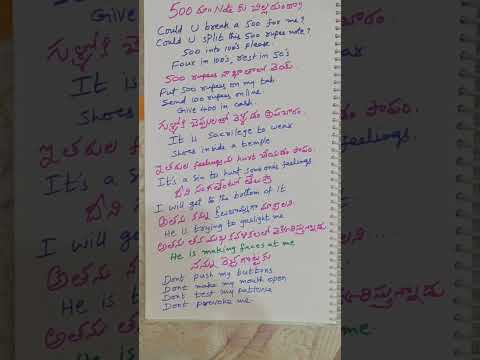 500 రూపా Note కు చిల్లర ఉందా?
Could U break a 500 for me?
Could U split this 500 rupes note?
500 into 100's please.
Four in 100's, rest in 50's
500 rupees నా ఖాతాలో వెయ్.
Put 500 rupees on my tab.
Send 100 rupees online
Give 400 in cash.
గుళ్ళోకి చెప్పులతో వెళ్ళడం అపచారం.
It is sacrilege to wear
Shoes inside a temple
ఇతరుల feelings ను hurt చేయడం పాపం.
It's a sin to hurt someones feelings
దీని సంగతేంటో తేలుస్తా
I will get to the bottom of it
అతను నన్ను
He is trying to gaslight me
అతను తన ముఖ కవళికలతో వెక్కిరిస్తున్నాడు
He is making faces at me
నన్ను రెచ్చగొట్టకు
Dont push my buttons
Dont make my mouth open
Dont test my patience
Dont porovoke me